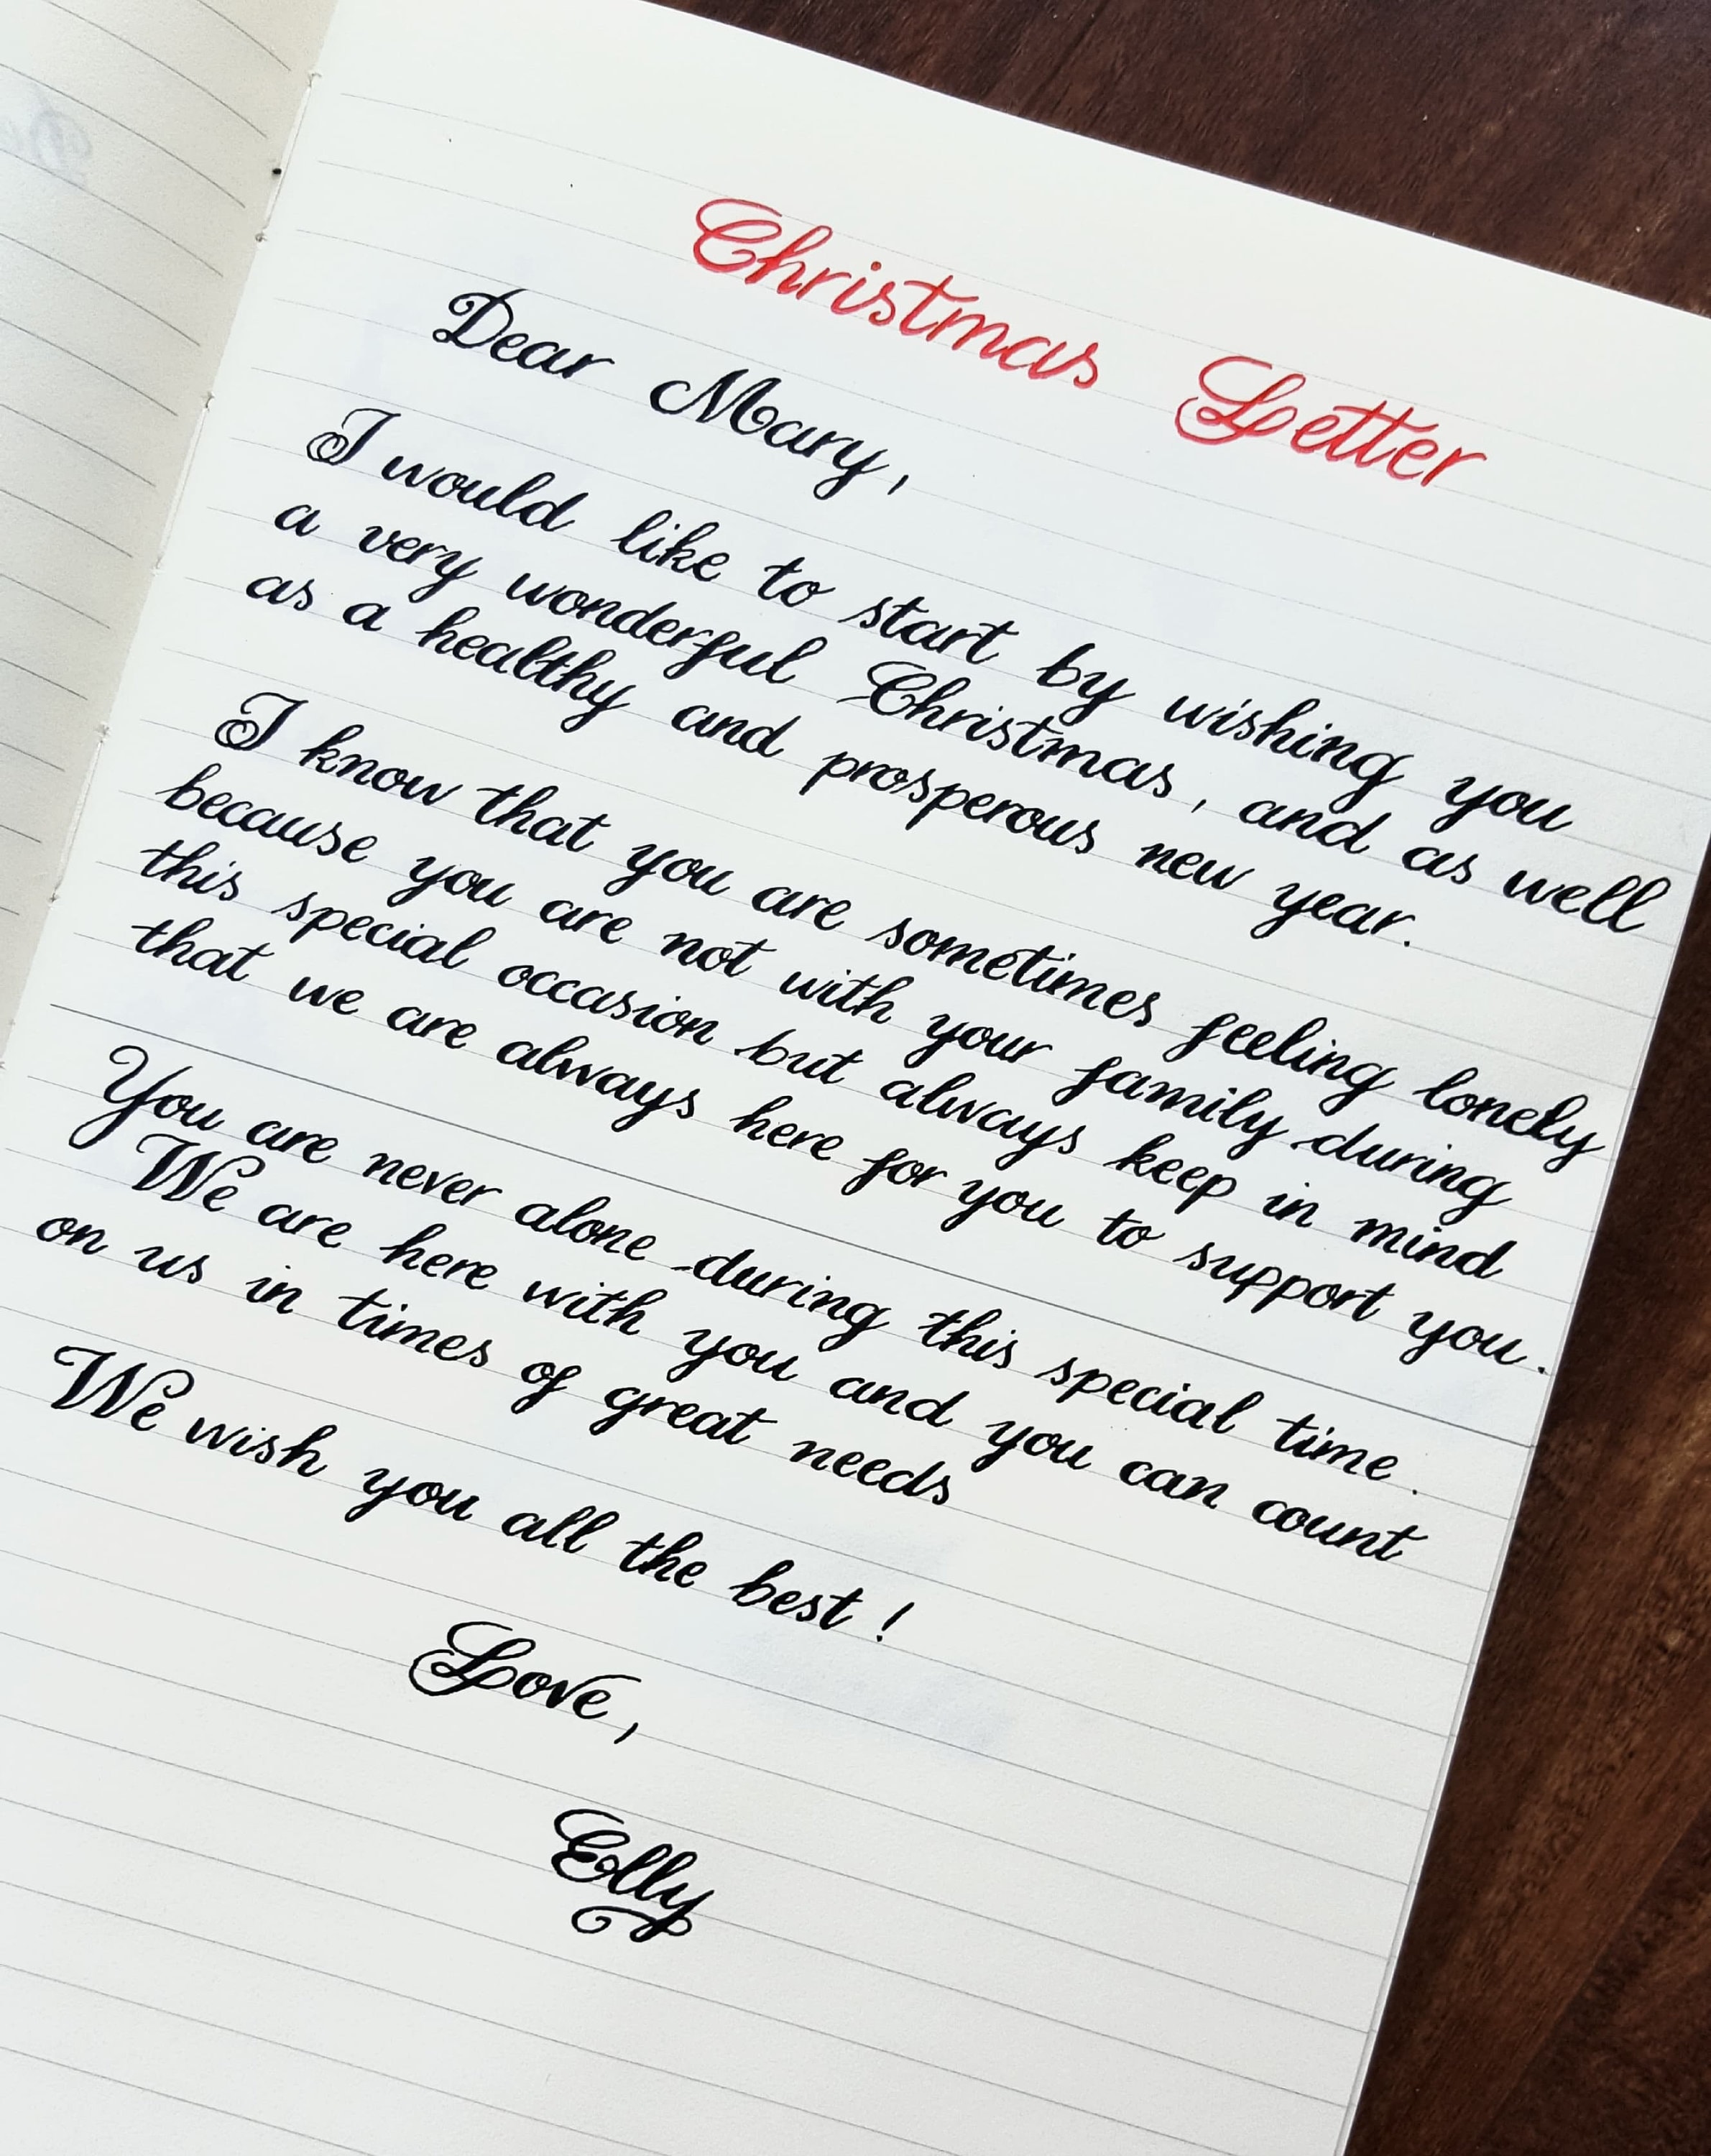 Christmas Letter
Dear Mary,
I would like to start by wishing you
a very wonderful Christmas, and as well
as a healthy and prosperous new year.
I know that you are sometimes feeling lonely
because you are not with your family during
this special occasion but always keep in mind
that we are always here for you to support you.
You are never alone during this special time.
We are here with you and you can count
on us in times of great needs
We wish you all the best!
Love,
Elly